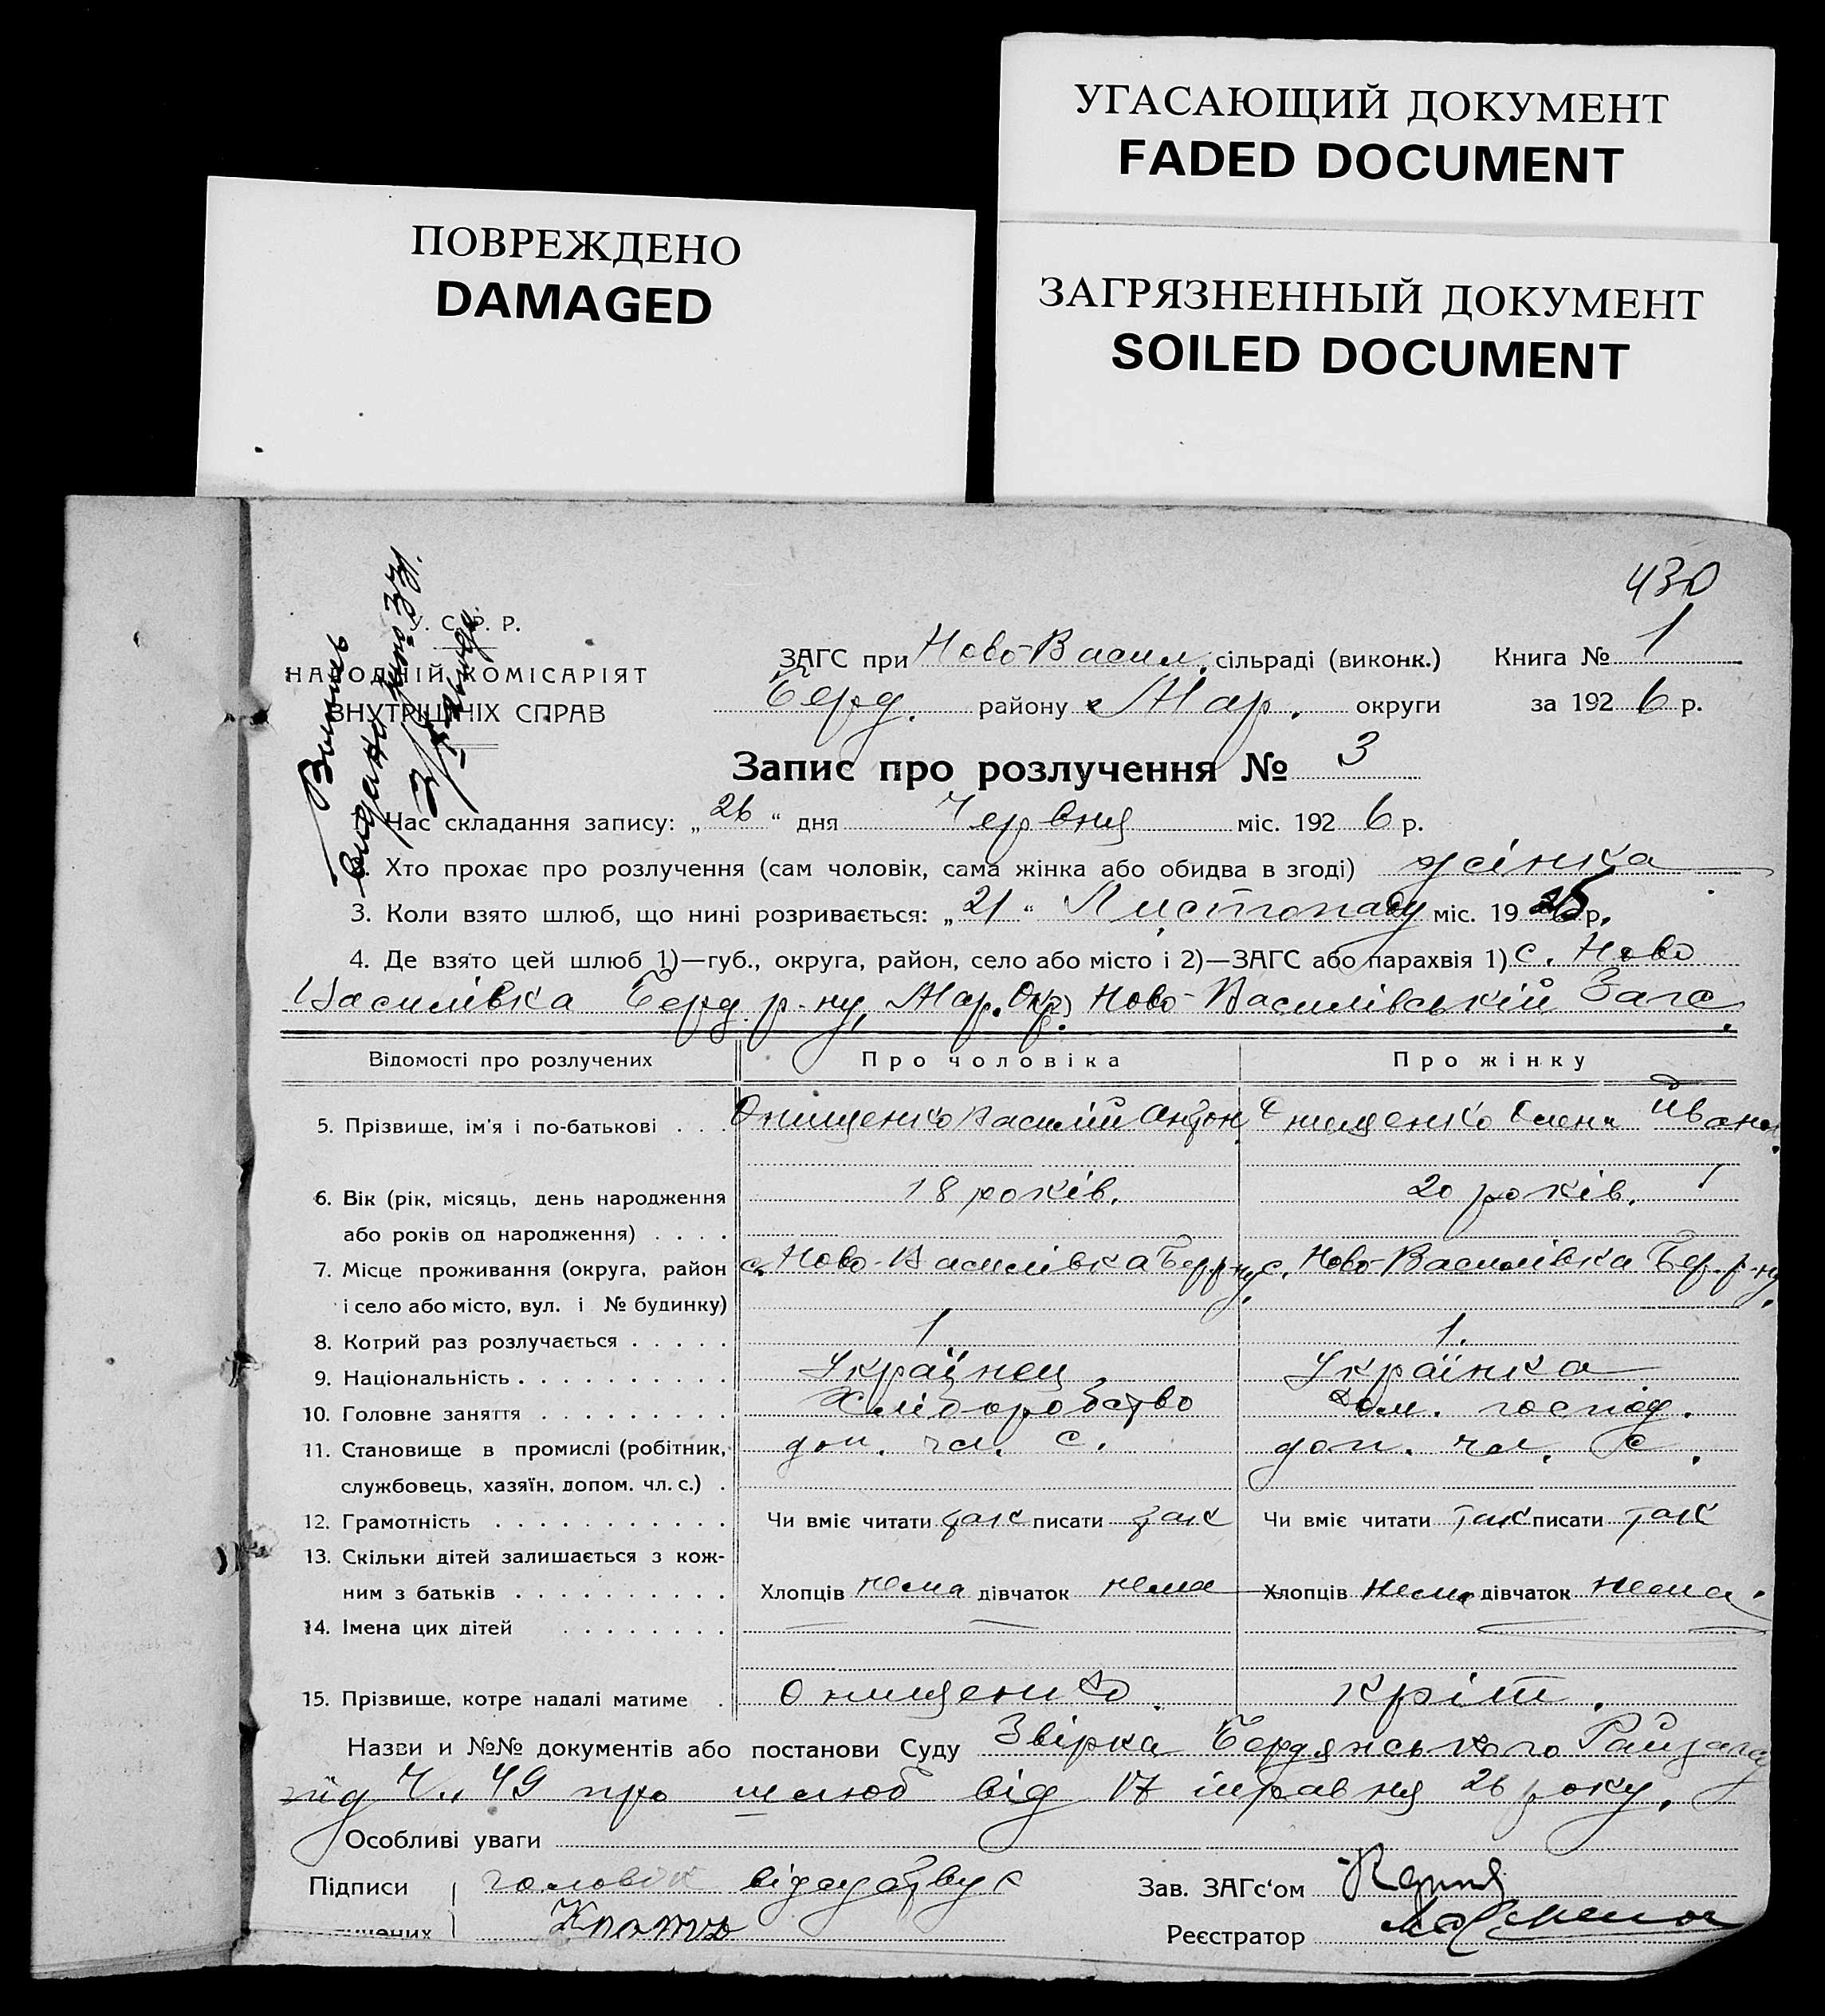 УГАСАЮЩИЙ ДОКУМЕНТ
FADED DOCUMENT
ПОВРЕЖДЕНО
DAMAGED
ЗАГРЯЗНЕННЫЙ ДОКУМЕНТ
SOILED DOCUMENT
430
У. С. Р. Р.
НАРОДНІЙ КОМІСАРІЯТ
ВНУТРІШНІХ СПРАВ
ЗАГС при Ново-Васил. сільраді (виконк.) Книга № 1
Берд. району Мар. округи за 1926 р.
Запис про розлучення № 3
1. Час складання запису: „26“ дня Червня міс. 1926 р.
Хто прохає про розлучення (сам чоловік, сама жінка або обидва в згоді) жінка
3. Коли взято шлюб, що нині розривається: „21“ Листопаду міс. 1925 р.
4. Де взято цей шлюб 1)—губ., округа, район, село або місто і 2)—ЗАГС або парахвія 1) с. Ново
Василівка Берд. р-ну, Мар. Окр. 2) Ново-Василівській Загс.
Відомості про розлучених Про чоловіка Про жінку
5. Прізвище, ім'я і по-батькові . . . Онищенко Василій Антон. Онищенко Елена Иванов.
6. Вік (рік, місяць, день народження 18 років. 20 років.
або років од народження) . . . .
7. Місце проживання (округа, район с. Ново-Василівка Бер. р-ну. с. Ново-Василівка Бер. р-ну.
і село або місто, вул. і № будинку)
8. Котрий раз розлучається . . . . . 1 1.
9. Національність . . . . . . . . . . Українец Українка
10. Головне заняття . . . . . . . . . Хліборобство Дом. господ.
11. Становище в промислі (робітник, доп. чл. с. доп. чл. с.
службовець, хазяїн, допом. чл. с.) .
12. Грамотність . . . . . . . . . . . Чи вміє читати так писати так Чи вміє читати так писати так
13. Скільки дітей залишається з кож-
ним з батьків . . . . . . . . . . Хлопців нема дівчаток нема Хлопців нема дівчаток нема.
14. Імена цих дітей . . . . . . . .
15. Прізвище, котре надалі матиме . Онищенко. Кріт.
Назви и №№ документів або постанови Суду Звірка Бердянського Райзагсу
під Ч. 49 про шлюб від 17 травня 26 року.
Особливі уваги
Підписи чоловік відсутствує Зав. ЗАГс'ом
Реєстратор